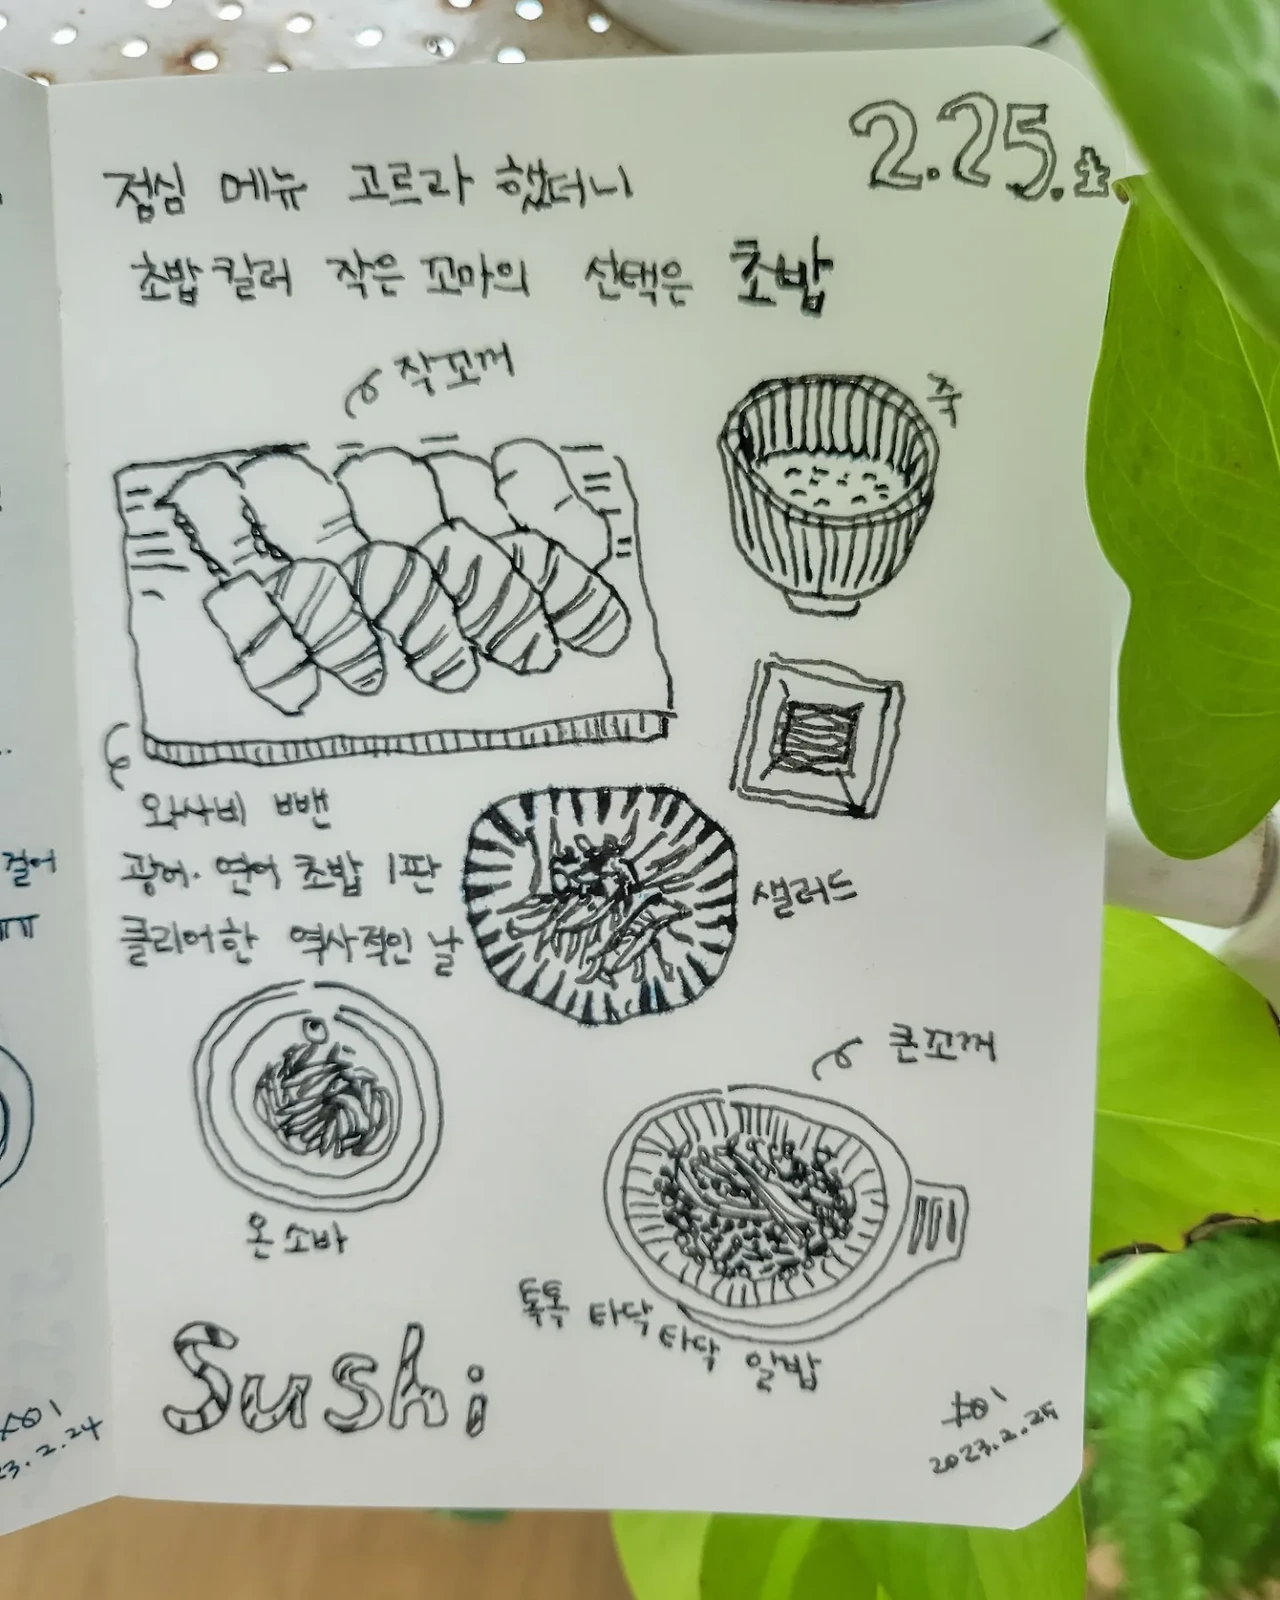 2.25.토
점심 메뉴 고르라 했더니
초밥킬러 작은 꼬마의 선택은 초밥
작꼬꺼
죽
와사비 뺀
광어·연어 초밥 1판
클리어한 역사적인 날
샐러드
온소바
큰꼬꺼
톡톡 타닥
타닥 알밥
Sushi
2023.2.25
걸어
ㅠㅠ
23.2.24